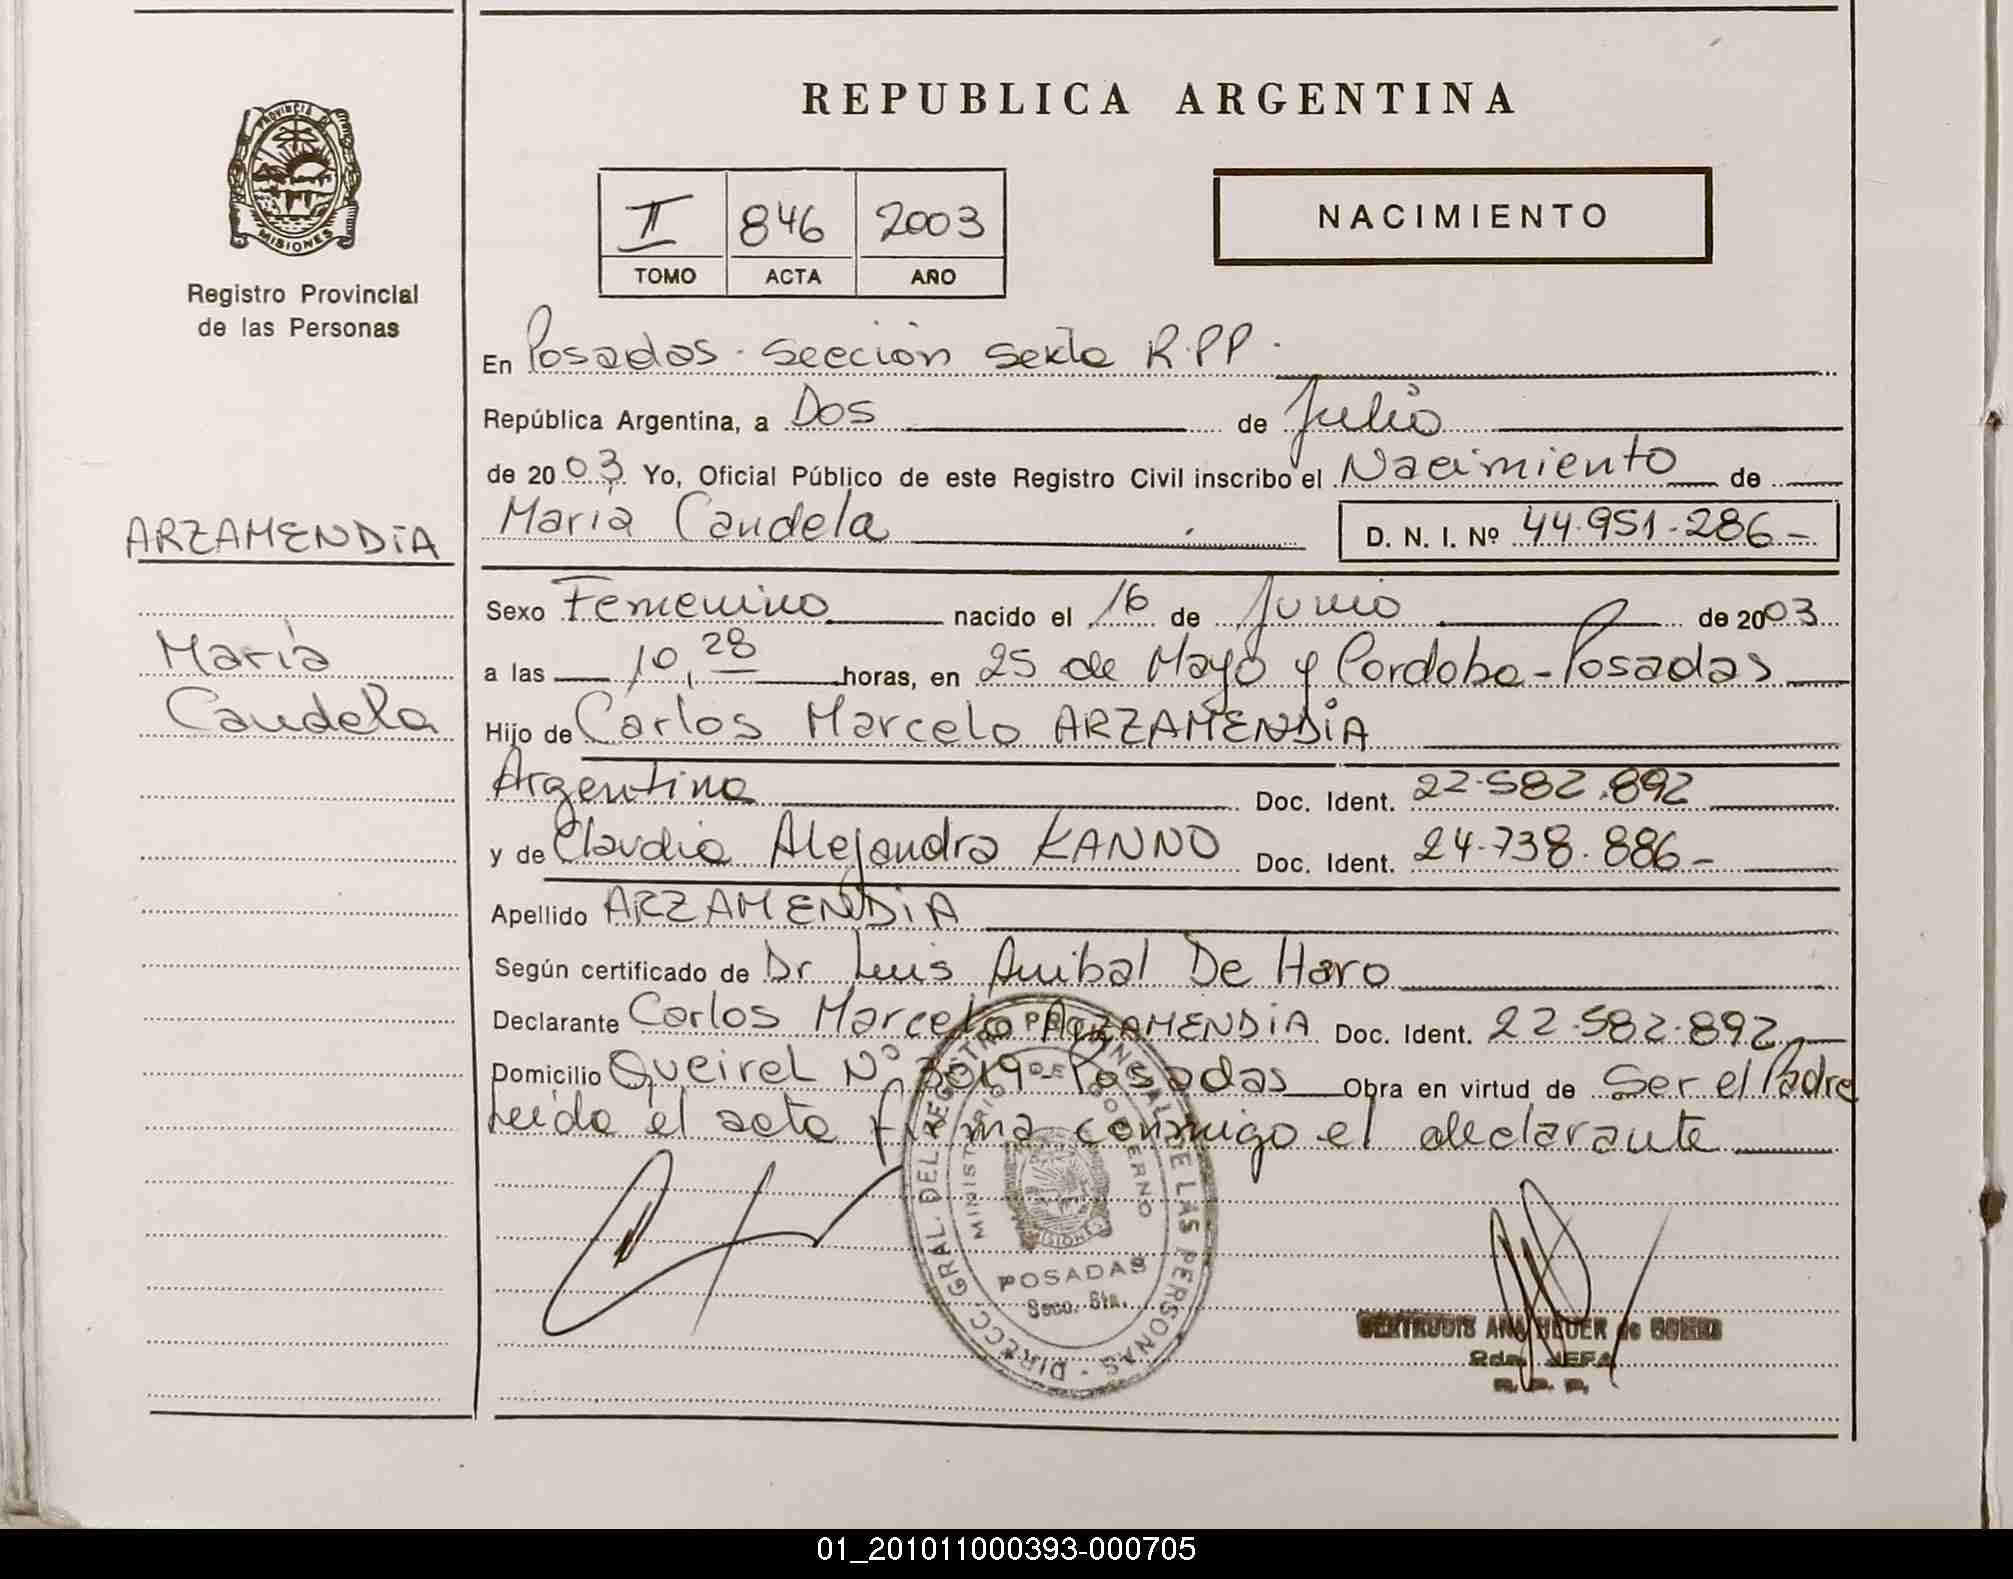 REPUBLICA ARGENTINA
PROVINCIA DE
MISIONES
Registro Provincial
de las Personas
II 846 2003
TOMO ACTA AÑO
NACIMIENTO
En Posadas. Sección Sexta R.P.P.
República Argentina, a Dos de Julio
de 2003 Yo, Oficial Público de este Registro Civil inscribo el Nacimiento de
María Candela D. N. I. Nº 44.951.286-
ARZAMENDiA
María
Candela
Sexo Femenino nacido el 16 de Junio de 2003
a las 10,28 horas, en 25 de Mayo y Cordoba-Posadas
Hijo de Carlos Marcelo ARZAMENDiA
Argentina Doc. Ident. 22.582.892
y de Claudia Alejandra KANNO Doc. Ident. 24.738.886-
Apellido ARZAMENDiA
Según certificado de Dr. Luis Anibal De Haro
Declarante Carlos Marcelo ARZAMENDiA Doc. Ident. 22.582.892
Domicilio Queirel Nº 3019- Posadas Obra en virtud de Ser el Padre
Leída el acta firma conmigo el declarante
DIRECC. GRAL. DEL REGISTRO PROVINCIAL DE LAS PERSONAS
MINISTERIO DE GOBIERNO
MISIONES
POSADAS
Secc. 6ta.
GERTRUDIS ANA de
JEFA
R. P. P.
01_201011000393-000705